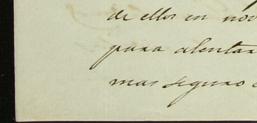 de ellos en nov
para alentar
mas seguro